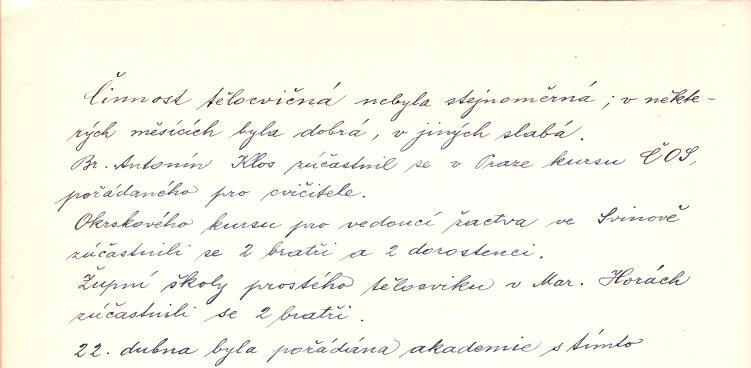 Činnost tělocvičná nebyla stejnoměrná; v někte-
rých měsících byla dobrá, v jiných slabá.
Br. Antonín Klos zúčastnil se v Praze kursu ČOS,
pořádaného pro cvičitele.
Okrskového kursu pro vedoucí žactva ve Svinově
zúčastnili se 2 bratři a 2 dorostenci.
Župní školy prostého tělocviku v Mar. Horách
zúčastnili se 2 bratři.
22. dubna byla pořádána akademie s tímto